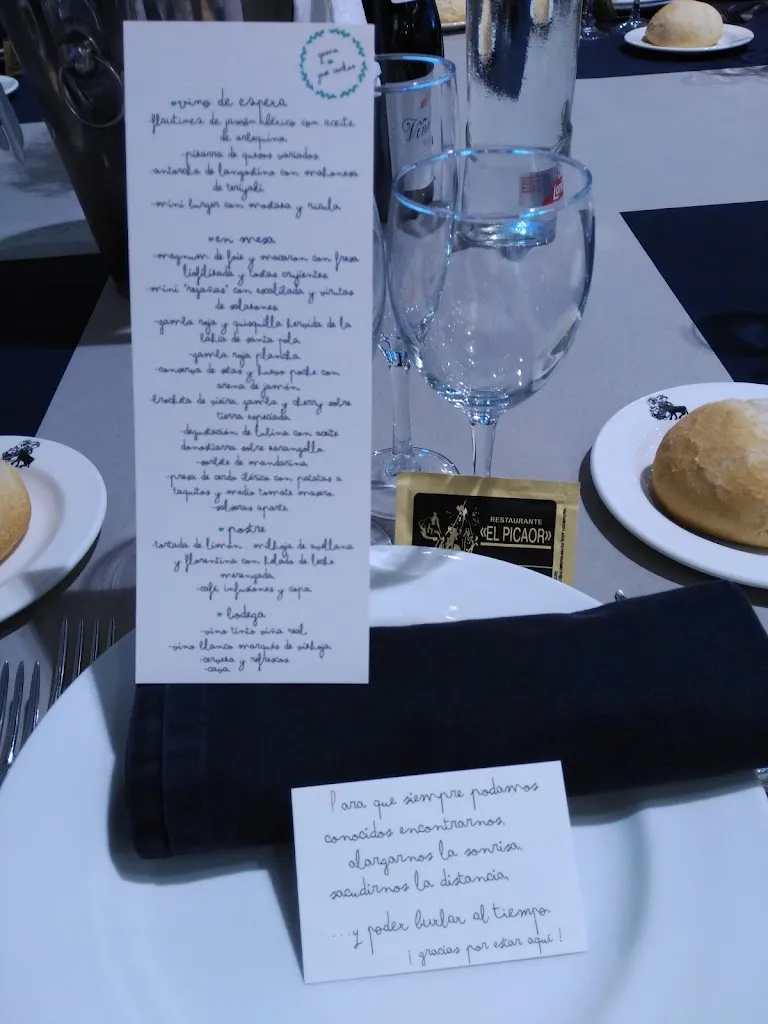 *vino de espera
-flautines de jamón ibérico con aceite
de arbequina
-pizarra de quesos variados
-antorcha de langostino con mahonesa
de teriyaki
-mini burger con mostaza y rúcula
*en mesa
-magnum de foie y macaron con fresa
liofilizada y tostas crujientes
-mini "regañas" con escalibada y virutas
de salazones
-gamba roja y quisquilla hervida de la
bahía de santa pola
-gamba roja plancha
-conserva de setas y huevo poche con
arena de jamón
-brocheta de vieira gamba y cherry sobre
tierra especiada
-degustación de lubina con aceite
donostiarra sobre zarangollo
-sorbete de mandarina
-presa de cerdo ibérico con patatas a
taquitos y medio tomate
-salsas aparte
*postre
-tortada de limón, milhoja de avellana
y florentina con helado de leche
merengada
-café infusiones y copa
*bodega
-vino tinto viña real
-vino blanco marqués de vizhoja
-cerveza y refrescos
-cava
RESTAURANTE
«EL PICAOR»
Para que siempre podamos
conocidos encontrarnos,
alargarnos la sonrisa,
sacudirnos la distancia,
...y poder burlar al tiempo
¡gracias por estar aquí!